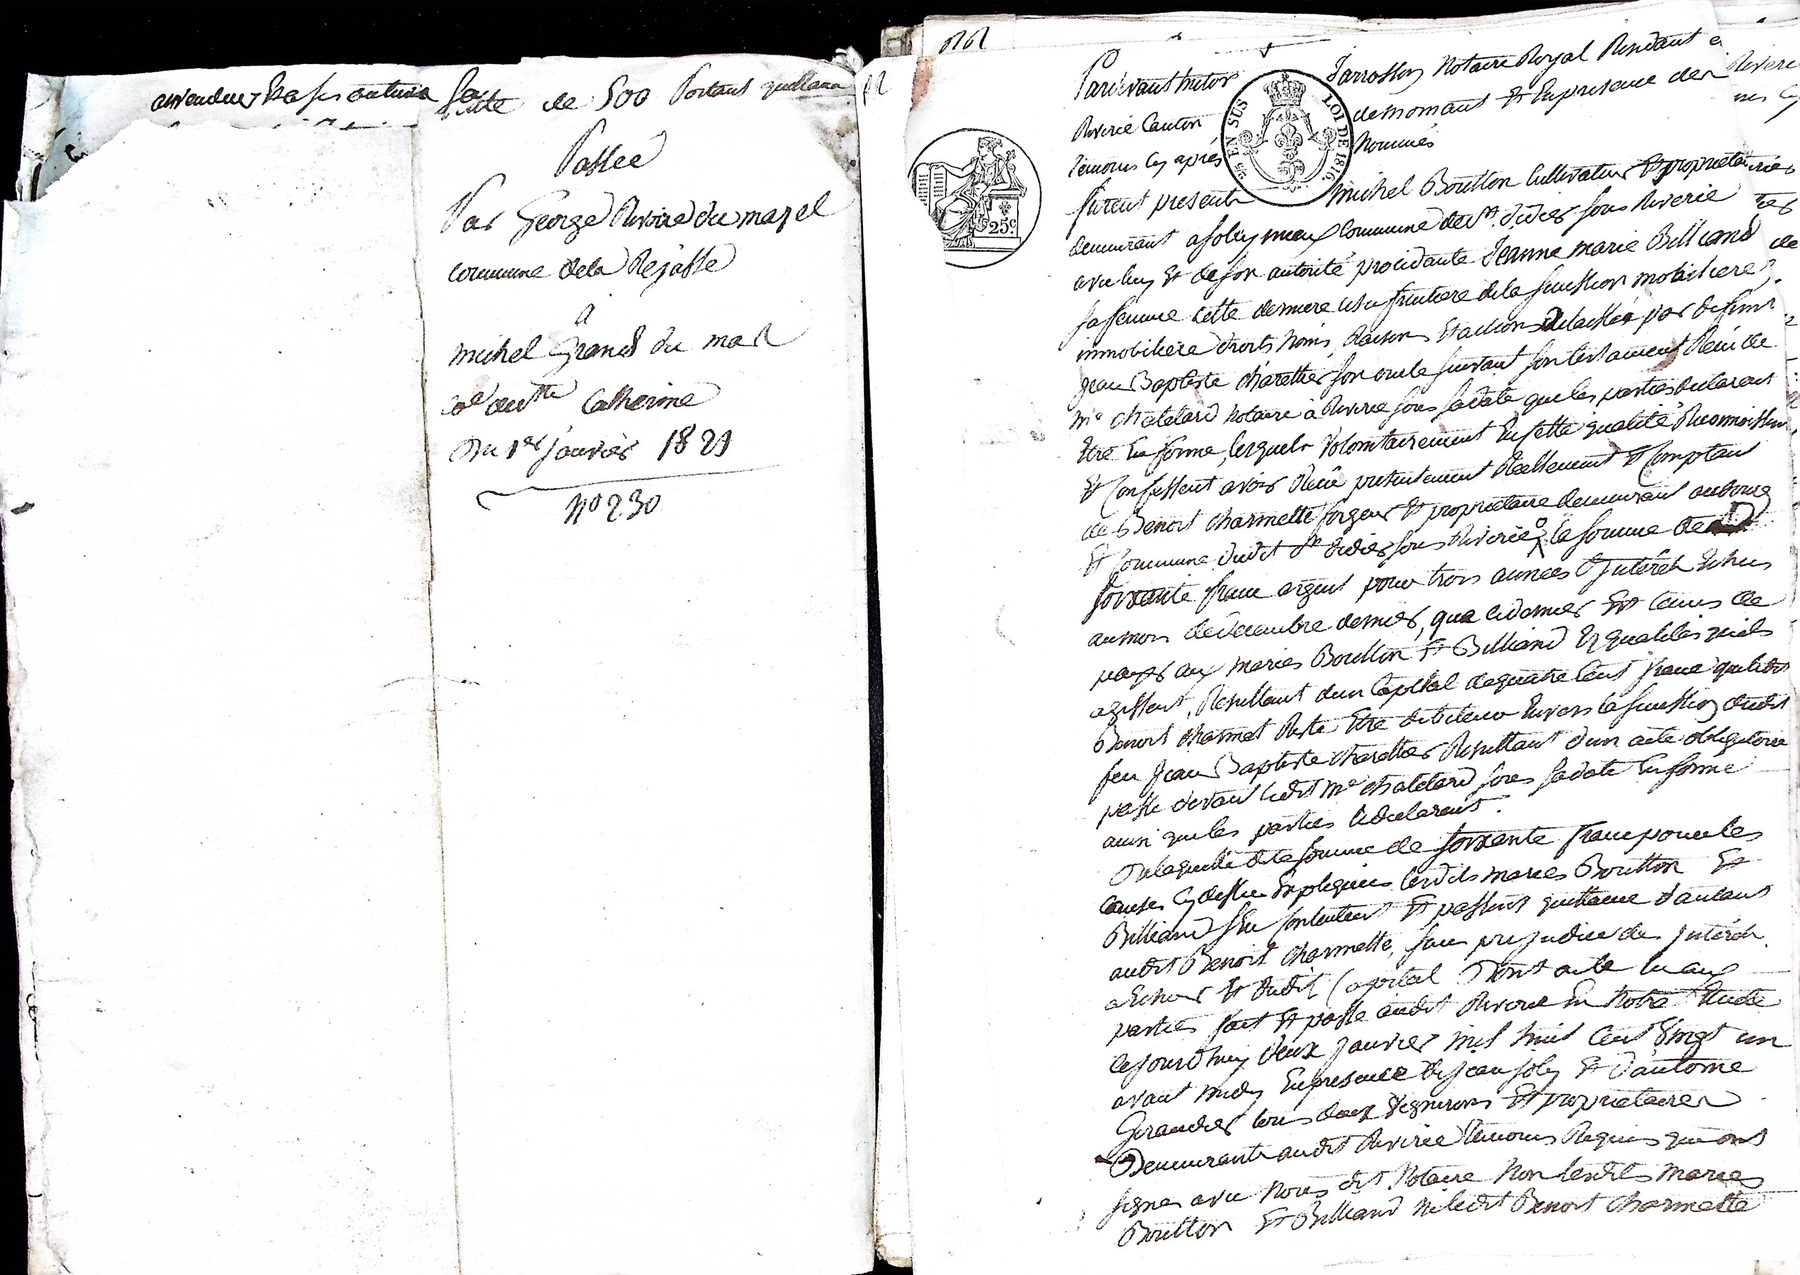 de 500 Portant quittance
Passée
Par George Rivoire du mazel
commune de la Rejasse
a
michel Grand du mas
Catherine
Du 1er janvier 1821
N° 230
Pardevant Jarrosson Notaire Royal Résident a
Riverie Canton de mornant Et En presence des
temoins Cy après Nommés
EN SUS
LOI DE 1816
25c
furent present michel Boutton Cultivateur Et proprietaire
demeurant a Commune de St. didier sous Riverie
avec luy Et de son autorité procédante Jeanne marie Billiand
sa femme cette derniere usufruitiere de la succession mobiliere
immobiliere droits Noms, Raisons Et actions delaissés par defunt
jean Baptiste charettier son oncle suivant son testament Reçu de
me chatelard Notaire à Riverie sous sa date que les parties declarent
Etre En forme, lesquels Volontairement En cette qualité Reconnoissent
Et Confessent avoir Reçu presentement Reellement Et Comptant
de Benoit charmette forgeur Et proprietaire demeurant au bourg
Et Commune dudit St didier sous Riverie la somme de
soixante franc argent pour trois années d'Jnterêt Echus
au mois de decembre dernier, que ce dernier Est tenus de
payer aux maries Boutton Et Billiand Es qualités qu'ils
agissent, Resultant d'un Capital de quatre Cent franc que ledit
Benoit charmet Reste Etre debiteur Envers la succession dudit
feu Jean Baptiste charettier Resultant d'un acte obligatoire
passé devant ledit Me chatelard sous sa date En forme
ainsi que les parties le declarent.
De laquelle dite somme de soixante franc pour les
causes Cy dessus Expliquées lesdits maries Boutton Et
Billiand s'En contentent Et passent quittance d'autant
audit Benoit charmette, sans prejudice des Jnterêt
a Echoir Et dudit Capital Dont acte lu aux
parties fait Et passé audit Riverie En Notre Etude
Cejourd'huy deux Janvier mil huit Cent Vingt un
avant midy En presence de jean joly Et d'antoine
Giraudier tous deux Vignerons Et proprietaires
Demeurants audit Riverie temoins Requis qui ont
signés avec Nous dit Notaire Non lesdits maries
Boutton Et Billiand Ni ledit Benoit charmette